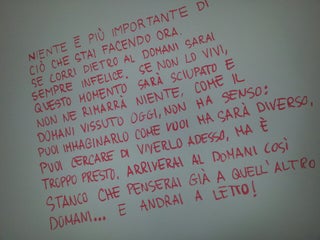 NIENTE È PIÙ IMPORTANTE DI
CIÒ CHE STAI FACENDO ORA.
SE CORRI DIETRO AL DOMANI SARAI
SEMPRE INFELICE. SE NON LO VIVI,
QUESTO MOMENTO SARÀ SCIUPATO E
NON NE RIMARRÀ NIENTE, COME IL
DOMANI VISSUTO OGGI, NON HA SENSO:
PUOI IMMAGINARLO COME VUOI MA SARÀ DIVERSO,
PUOI CERCARE DI VIVERLO ADESSO, MA È
TROPPO PRESTO. ARRIVERAI AL DOMANI COSÌ
STANCO CHE PENSERAI GIÀ A QUELL'ALTRO
DOMANI... E ANDRAI A LETTO!